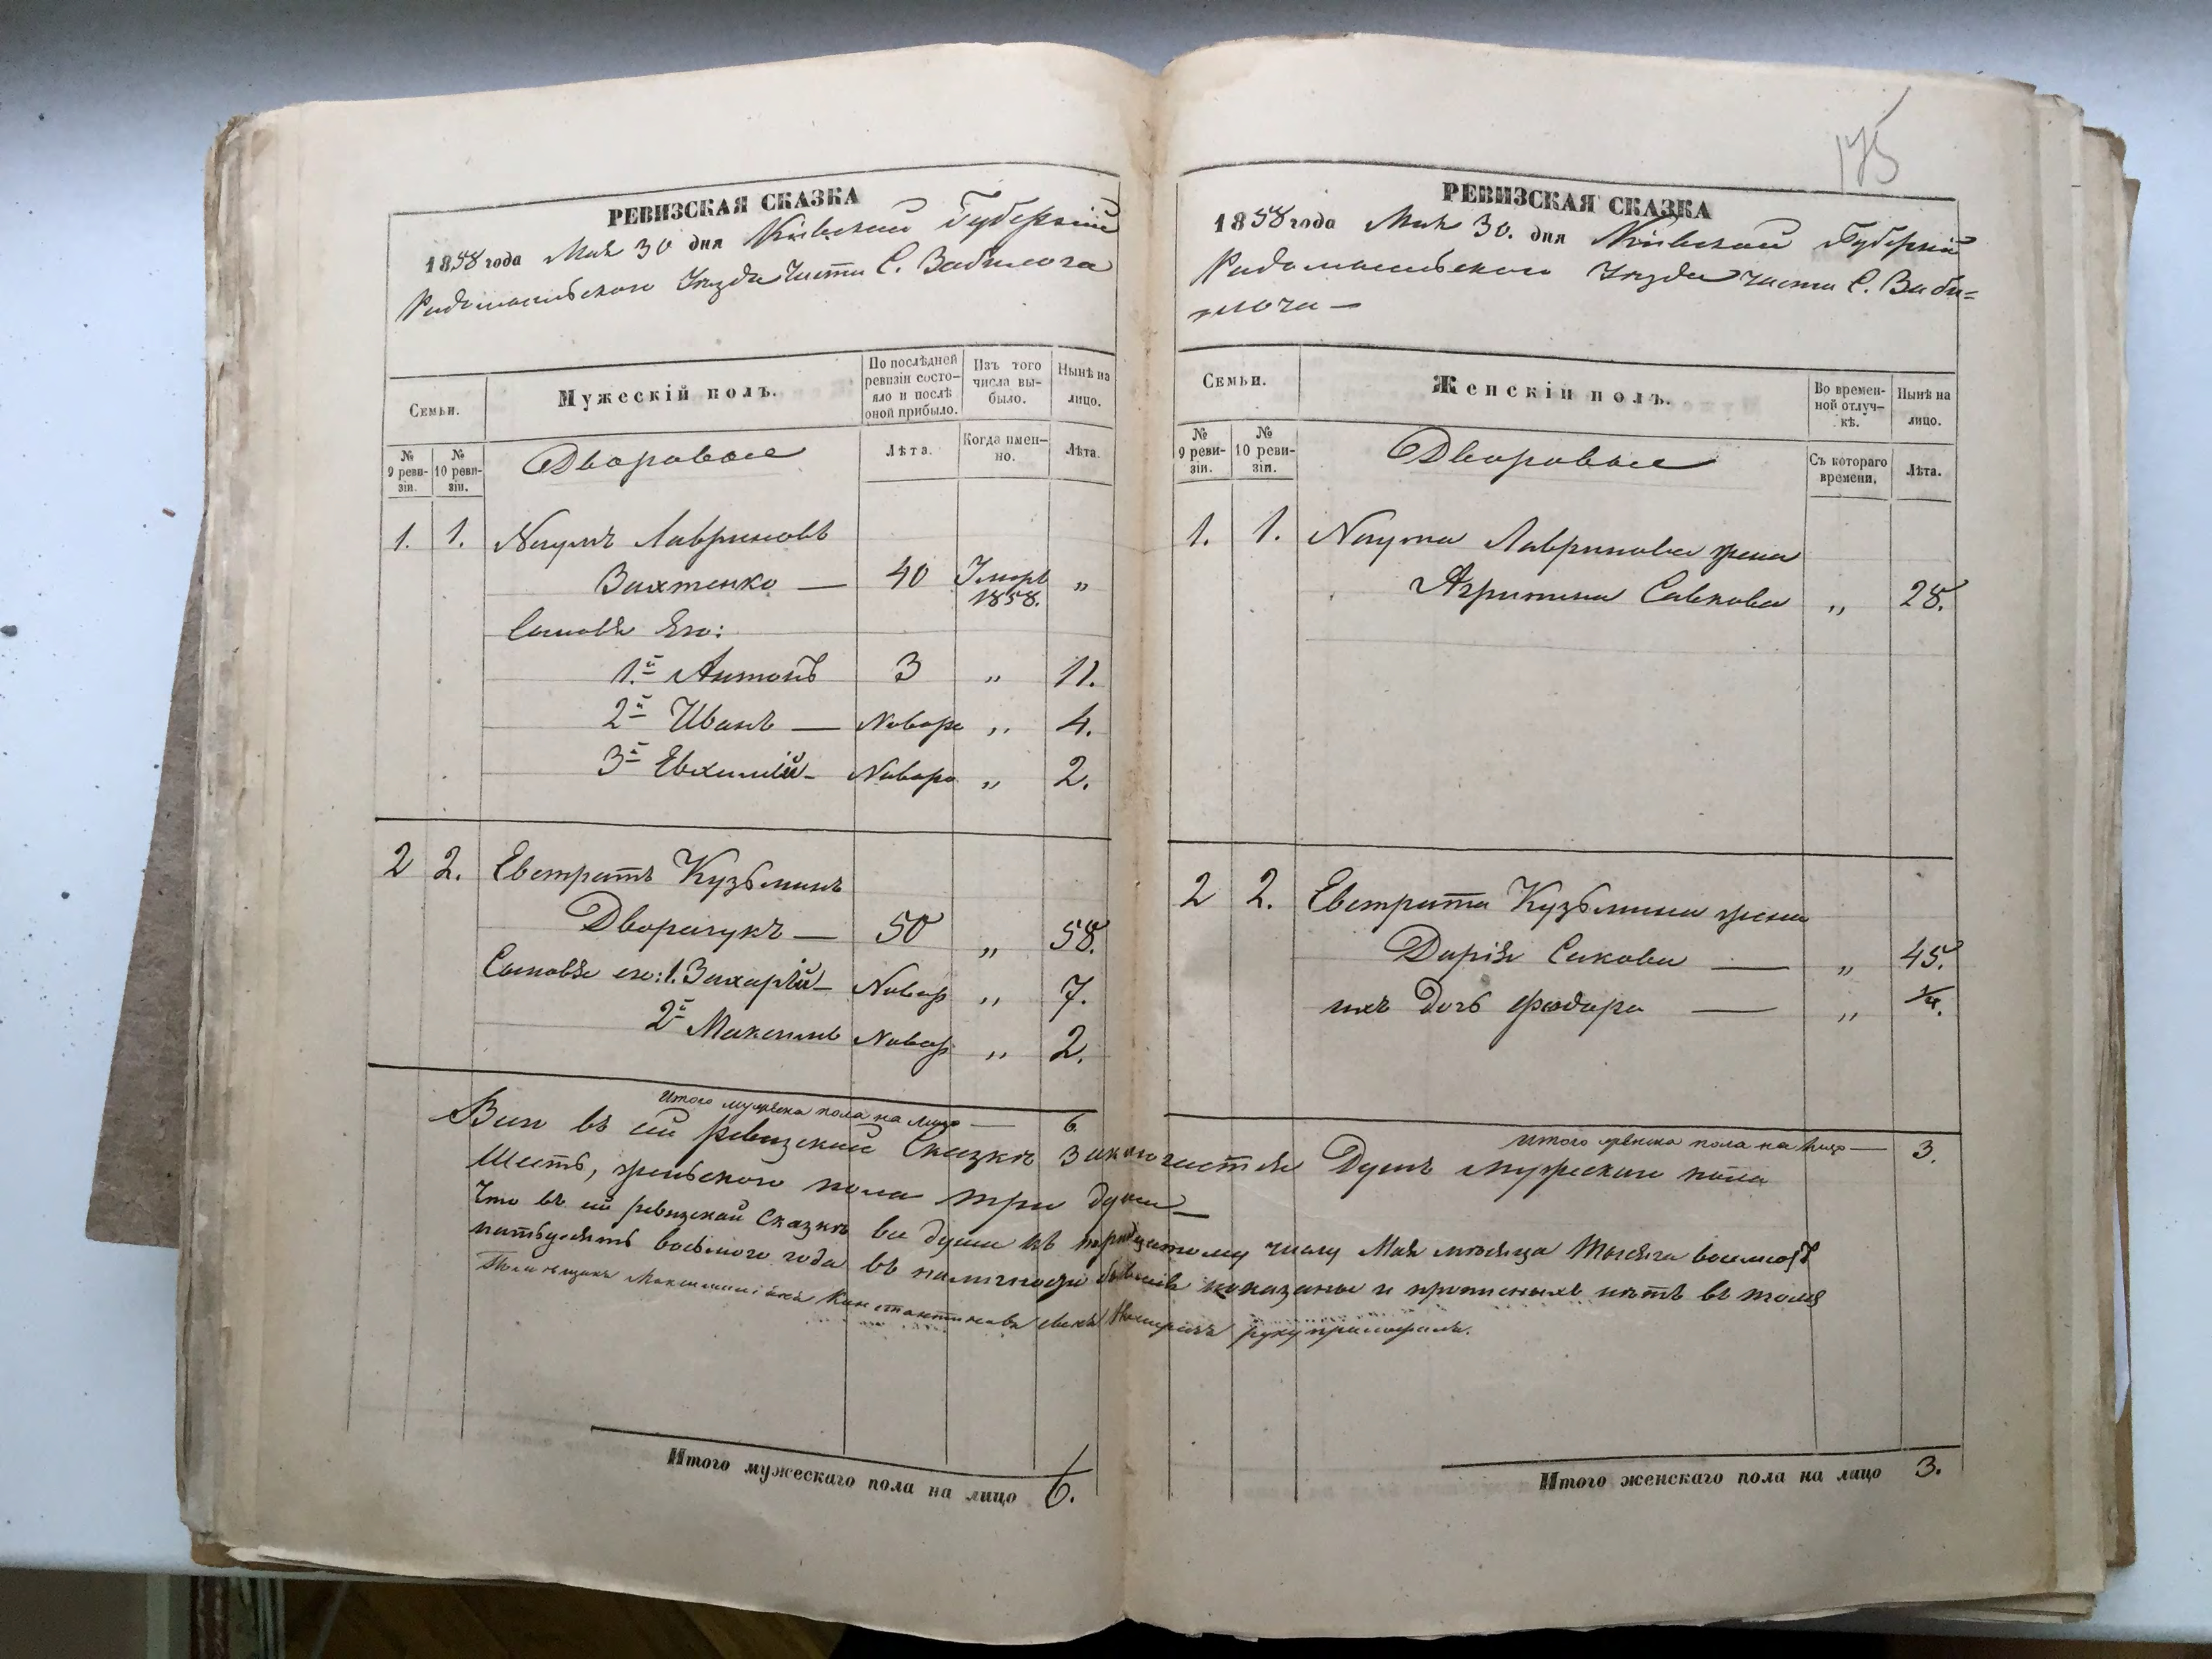 РЕВИЗСКАЯ СКАЗКА
1858 года Мая 30 дня Кіевской Губерніи
Радомысльскаго Уѣзда Части С. Забилоча
Семьи.
Мужескій полъ.
По послѣдней ревизіи состояло и послѣ оной прибыло.
Изъ того числа выбыло.
Нынѣ на лицо.
№ 9 ревизіи.
№ 10 ревизіи.
Дворовые
Лѣта.
Когда именно.
Лѣта.
1. 1. Наумъ Лавриновъ
Вахтенко — 40 Умеръ 1858. „
Сыновья Его:
1й Антонъ 3 „ 11.
2й Иванъ — Новоро „ 4.
3й Евхимій - Новоро „ 2.
2 2. Евстратъ Кузьминъ
Дворачукъ — 50 „ 58.
Сыновья его: 1. Захарій - Новор „ 7.
2й Максимъ Новор „ 2.
Итого мужеска пола на лицо — 6.
175
РЕВИЗСКАЯ СКАЗКА
1858 года Мая 30. дня Кіевской Губерніи
Радомысльскаго Уѣзда Части С. Заби=
лоча —
Семьи.
Женскій полъ.
Во временной отлучкѣ.
Нынѣ на лицо.
№ 9 ревизіи.
№ 10 ревизіи.
Дворовые
Съ котораго времени.
Лѣта.
1. 1. Наума Лавринова жена
Агрипина Савкова „ 28.
2 2. Евстрата Кузьмина жена
Дарія Сакова — „ 45.
ихъ Дочь Федора — „ 1/4.
Итого женска пола на лицо — 3.
Всего въ сій ревизской Сказкѣ Заключается Душъ мужескаго пола
Шесть, женскаго пола три души —
Что въ сій ревизской Сказкѣ все души къ тридцатому числу Мая мѣсяца тысяча восемьсотъ
пятьдесятъ восьмого года въ наличности показаны и прописныхъ нѣтъ въ томъ
Помѣщикъ Максимиліянъ Константиновъ сынъ руку приложилъ.
Итого мужескаго пола на лицо 6.
Итого женскаго пола на лицо 3.